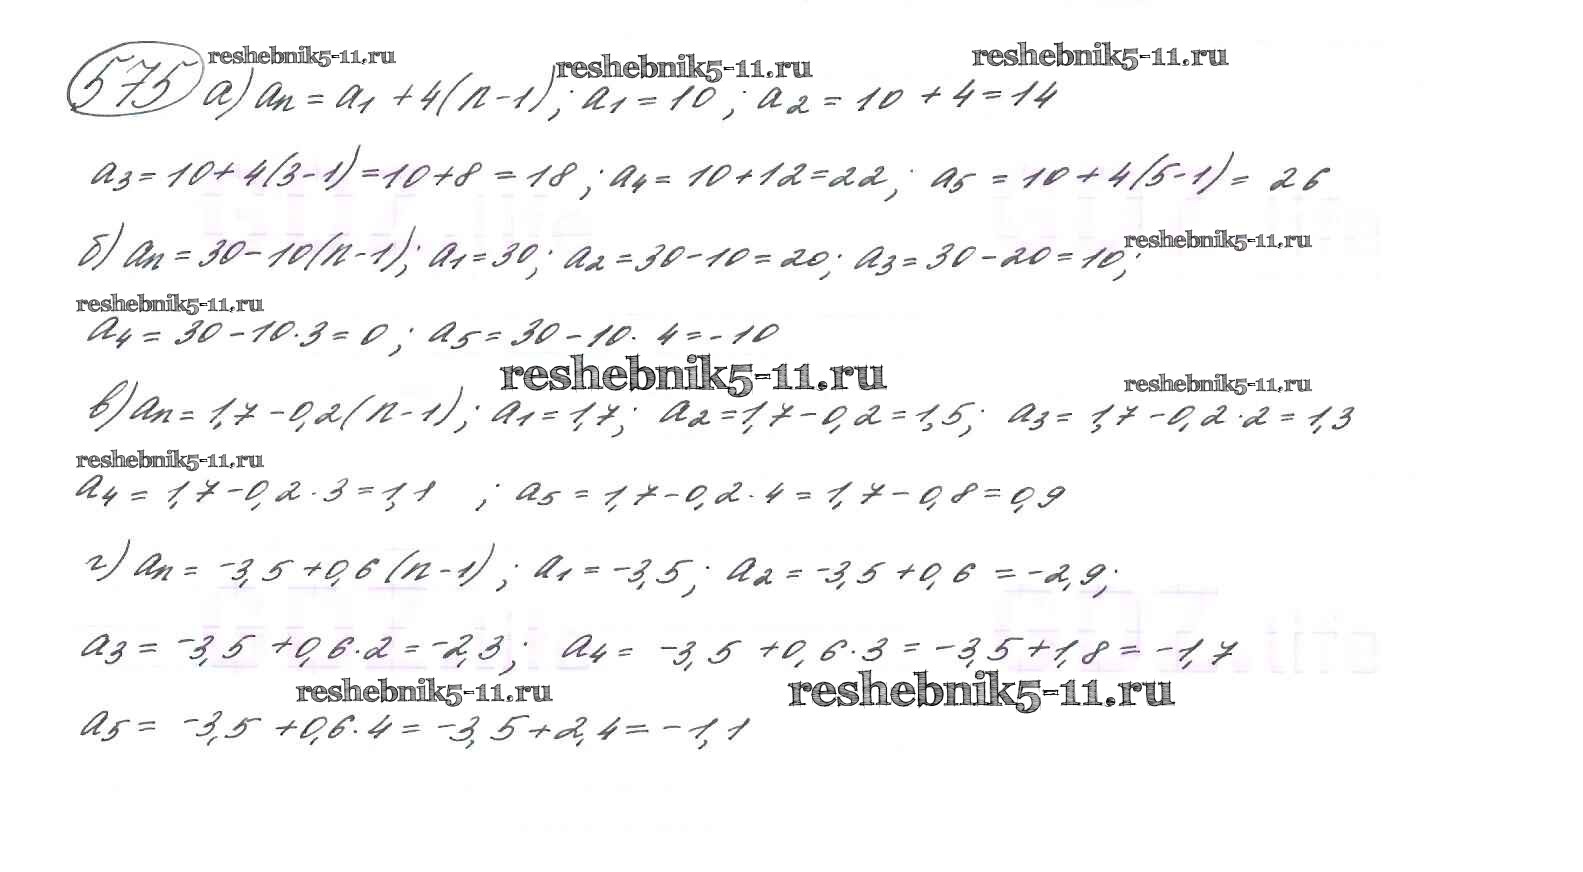 reshebnik5-11.ru reshebnik5-11.ru reshebnik5-11.ru
575 а) an = a1 + 4(n-1); a1 = 10; a2 = 10 + 4 = 14
a3 = 10 + 4(3-1) = 10+8 = 18; a4 = 10+12 = 22; a5 = 10 + 4(5-1) = 26
б) an = 30-10(n-1); a1 = 30; a2 = 30-10 = 20; a3 = 30-20 = 10; reshebnik5-11.ru
reshebnik5-11.ru
a4 = 30-10·3 = 0; a5 = 30-10·4 = -10
reshebnik5-11.ru reshebnik5-11.ru
в) an = 1,7-0,2(n-1); a1 = 1,7; a2 = 1,7-0,2 = 1,5; a3 = 1,7-0,2·2 = 1,3
reshebnik5-11.ru
a4 = 1,7-0,2·3 = 1,1 ; a5 = 1,7-0,2·4 = 1,7-0,8 = 0,9
г) an = -3,5+0,6(n-1); a1 = -3,5; a2 = -3,5+0,6 = -2,9;
a3 = -3,5+0,6·2 = -2,3; a4 = -3,5+0,6·3 = -3,5+1,8 = -1,7
reshebnik5-11.ru reshebnik5-11.ru
a5 = -3,5+0,6·4 = -3,5+2,4 = -1,1